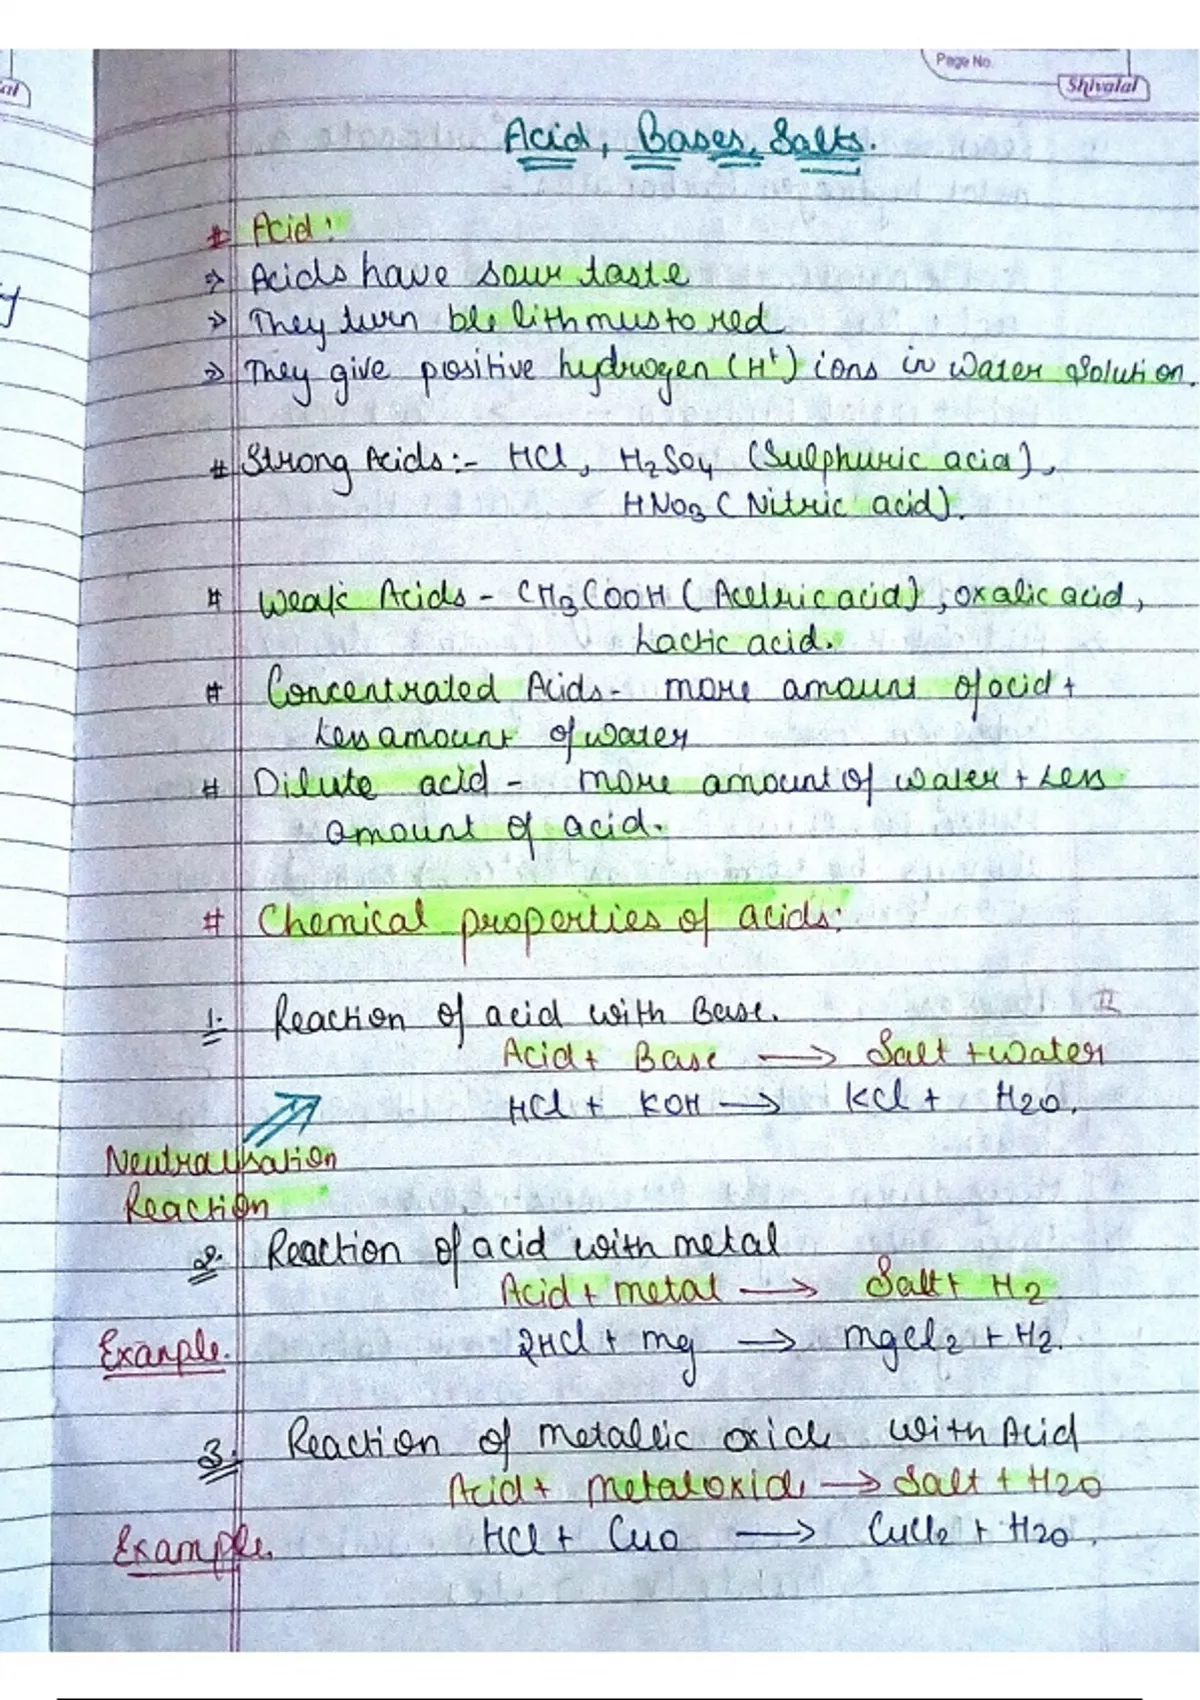 Page No.
Shivalal
Acid, Bases, Salts.
# Acid:
⇒ Acids have sour taste
⇒ They turn ble lithmus to red
⇒ They give positive hydrogen (H⁺) ions in Water Solution.
# Strong Acids:- HCl, H₂SO₄ (Sulphuric acid),
HNO₃ (Nitric acid).
# Weak Acids - CH₃COOH (Acetric acid), oxalic acid,
Lactic acid.
# Concentrated Acids - more amount of acid +
Less amount of water
# Dilute acid - more amount of water + Less
amount of acid.
# Chemical properties of acids:
1. Reaction of acid with Base.
Acid + Base → Salt + water
HCl + KOH → KCl + H₂O.
Neutralisation
Reaction
2. Reaction of acid with metal
Acid + metal → Salt + H₂
Example. 2HCl + mg → mgCl₂ + H₂.
3. Reaction of metallic oxide with Acid
Acid + metaloxide → Salt + H₂O
Example. HCl + CuO → CuCl₂ + H₂O.